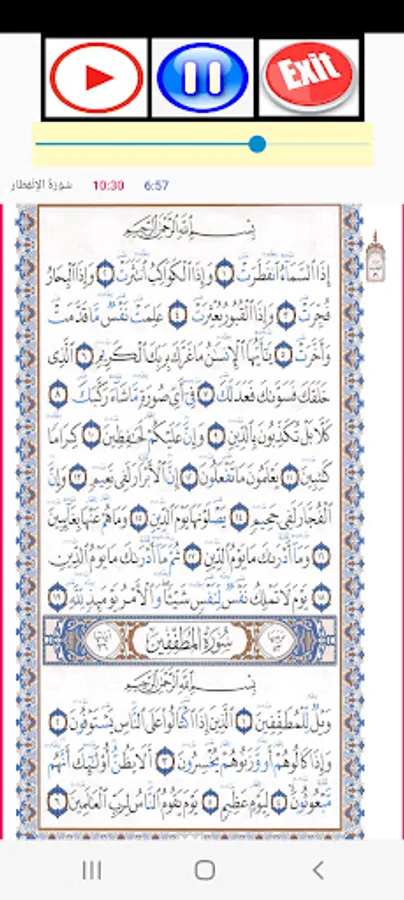 Exit
سورة الإنفطار 10:30 6:57
بسم الله الرحمن الرحيم
إذا السماء انفطرت ١ وإذا الكواكب انتثرت ٢ وإذا البحار
فجرت ٣ وإذا القبور بعثرت ٤ علمت نفس ما قدمت
وأخرت ٥ يأيها الإنسن ما غرك بربك الكريم ٦ الذى
خلقك فسوىك فعدلك ٧ فى أى صورة ما شاء ركبك ٨
كلا بل تكذبون بالدين ٩ وإن عليكم لحفظين ١٠ كراما
كتبين ١١ يعلمون ما تفعلون ١٢ إن الأبرار لفى نعيم ١٣ وإن
الفجار لفى جحيم ١٤ يصلونها يوم الدين ١٥ وما هم عنها بغائبين
١٦ وما أدرىك ما يوم الدين ١٧ ثم ما أدرىك ما يوم الدين
١٨ يوم لا تملك نفس لنفس شيئا والأمر يومئذ لله ١٩
سورة المطففين
بسم الله الرحمن الرحيم
ويل للمطففين ١ الذين إذا اكتالوا على الناس يستوفون ٢
وإذا كالوهم أو وزنوهم يخسرون ٣ ألا يظن أولئك أنهم
مبعوثون ٤ ليوم عظيم ٥ يوم يقوم الناس لرب العالمين ٦